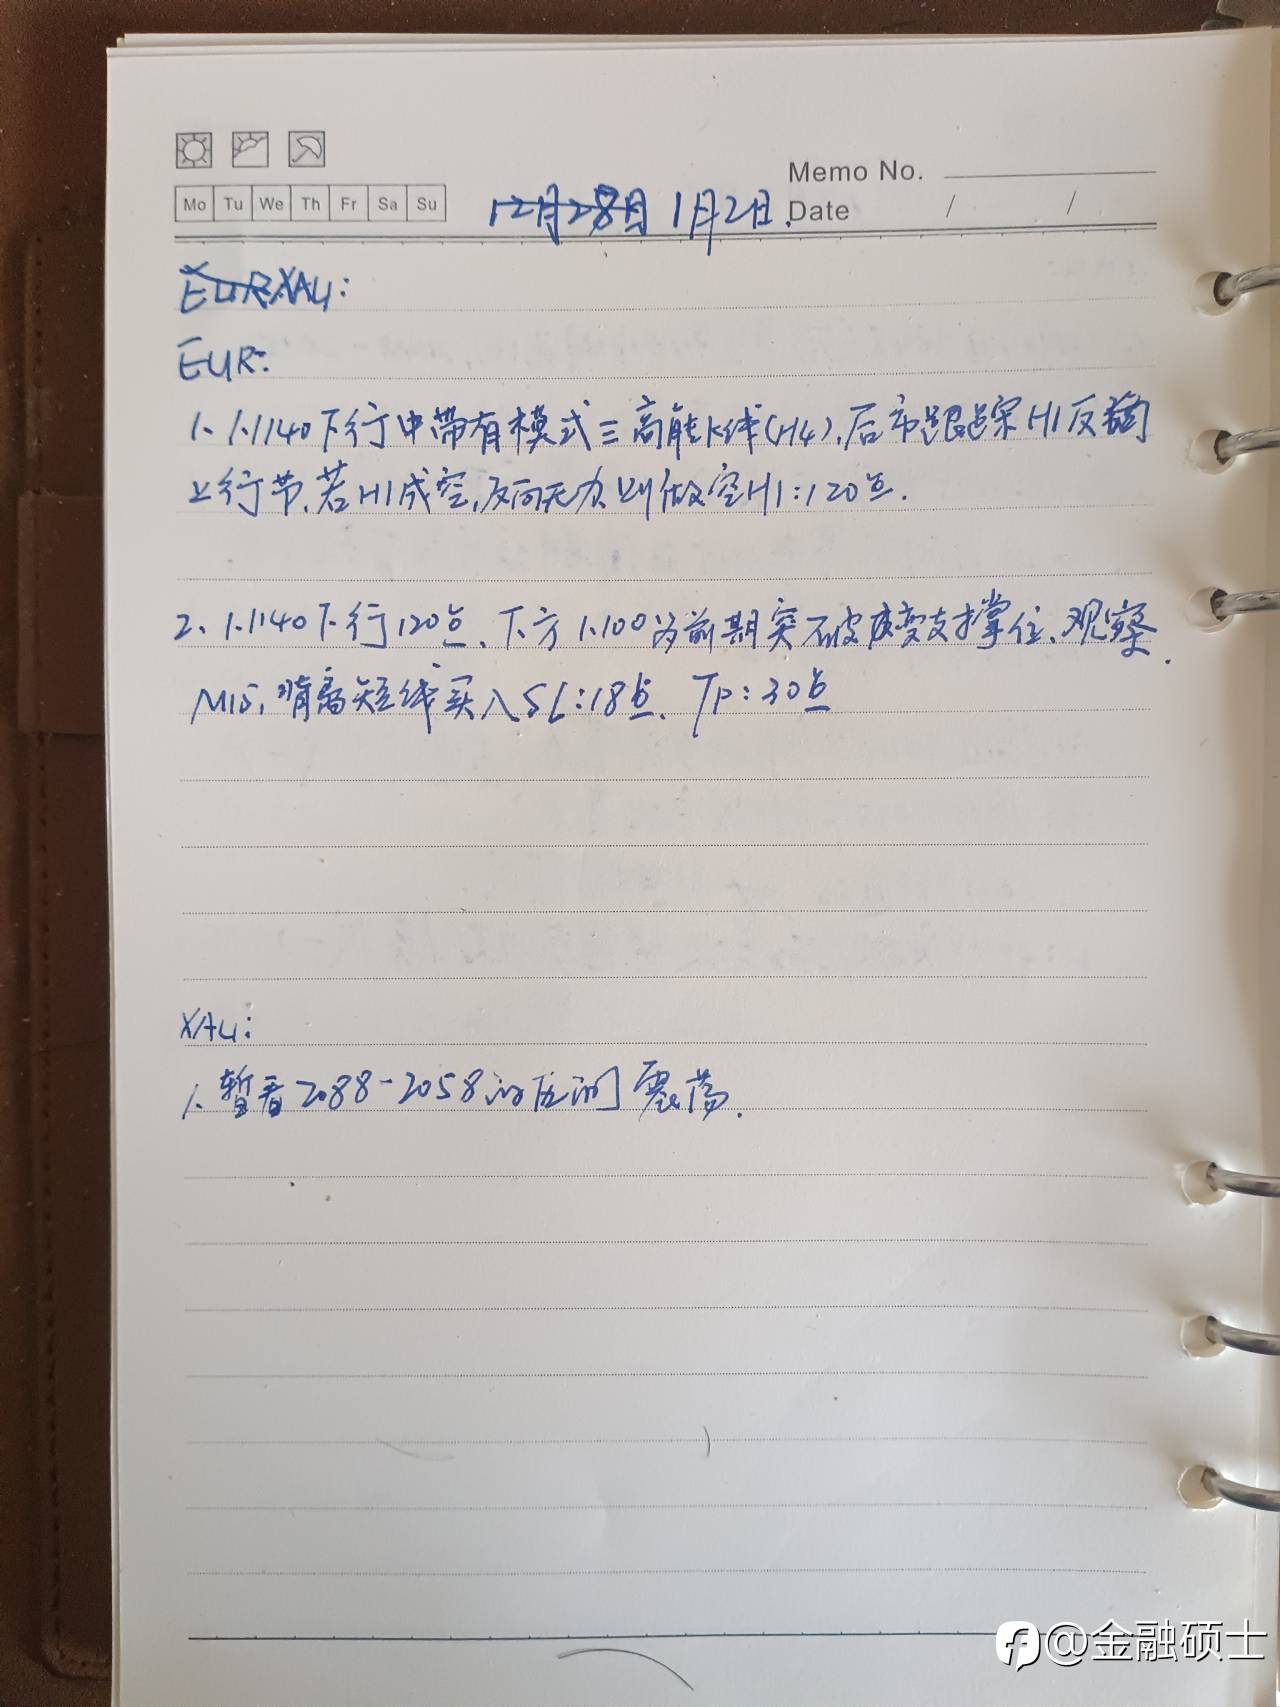 Memo No.
Mo Tu We Th Fr Sa Su
12月28日 1月2日. Date / /
EUR XAU:
EUR:
1、1.1140下行中带有模式三高能K线(H4),后市跟踪H1反向
上行节,若H1成空,反向无力则做空H1:120点.
2、1.1140下行120点、下方1.100为前期突破度变支撑位、观察
M15,背离短线买入SL:18点、TP:30点
XAU:
1、暂看2088-2058的区间震荡.
@金融硕士